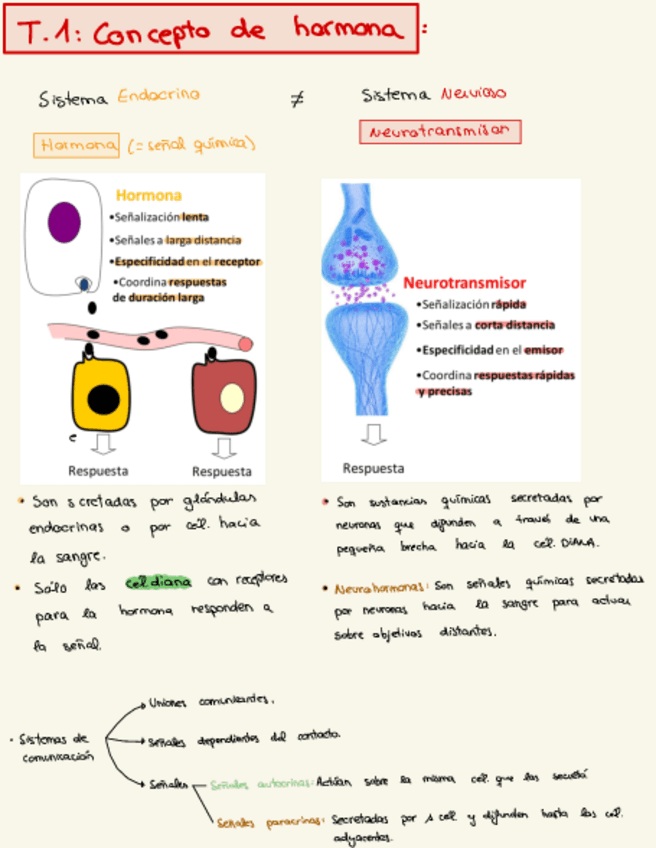 T.1: Concepto de hormona:
Sistema Endocrino ≠ Sistema Nervioso
Hormona (= señal química)
Neurotransmisor
Hormona
•Señalización lenta
•Señales a larga distancia
•Especificidad en el receptor
•Coordina respuestas
de duración larga
Respuesta Respuesta
Neurotransmisor
•Señalización rápida
•Señales a corta distancia
•Especificidad en el emisor
•Coordina respuestas rápidas
y precisas
Respuesta
• Son s cretadas por glándulas
endocrinas o por cél. hacia
la sangre.
• Sólo las cel.diana con receptores
para la hormona responden a
la señal.
• Son sustancias químicas secretadas por
neuronas que difunden a través de una
pequeña brecha hacia la cel. DIANA.
• Neurohormonas: Son señales químicas secretadas
por neuronas hacia la sangre para actuar
sobre objetivos distantes.
• Sistemas de
comunicación
Uniones comunicantes.
Señales dependientes del contacto.
Señales
Señales autocrinas: Actúan sobre la misma cel. que las secretá
Señales paracrinas: Secretadas por 1 cel y difunden hasta las cel.
adyacentes.